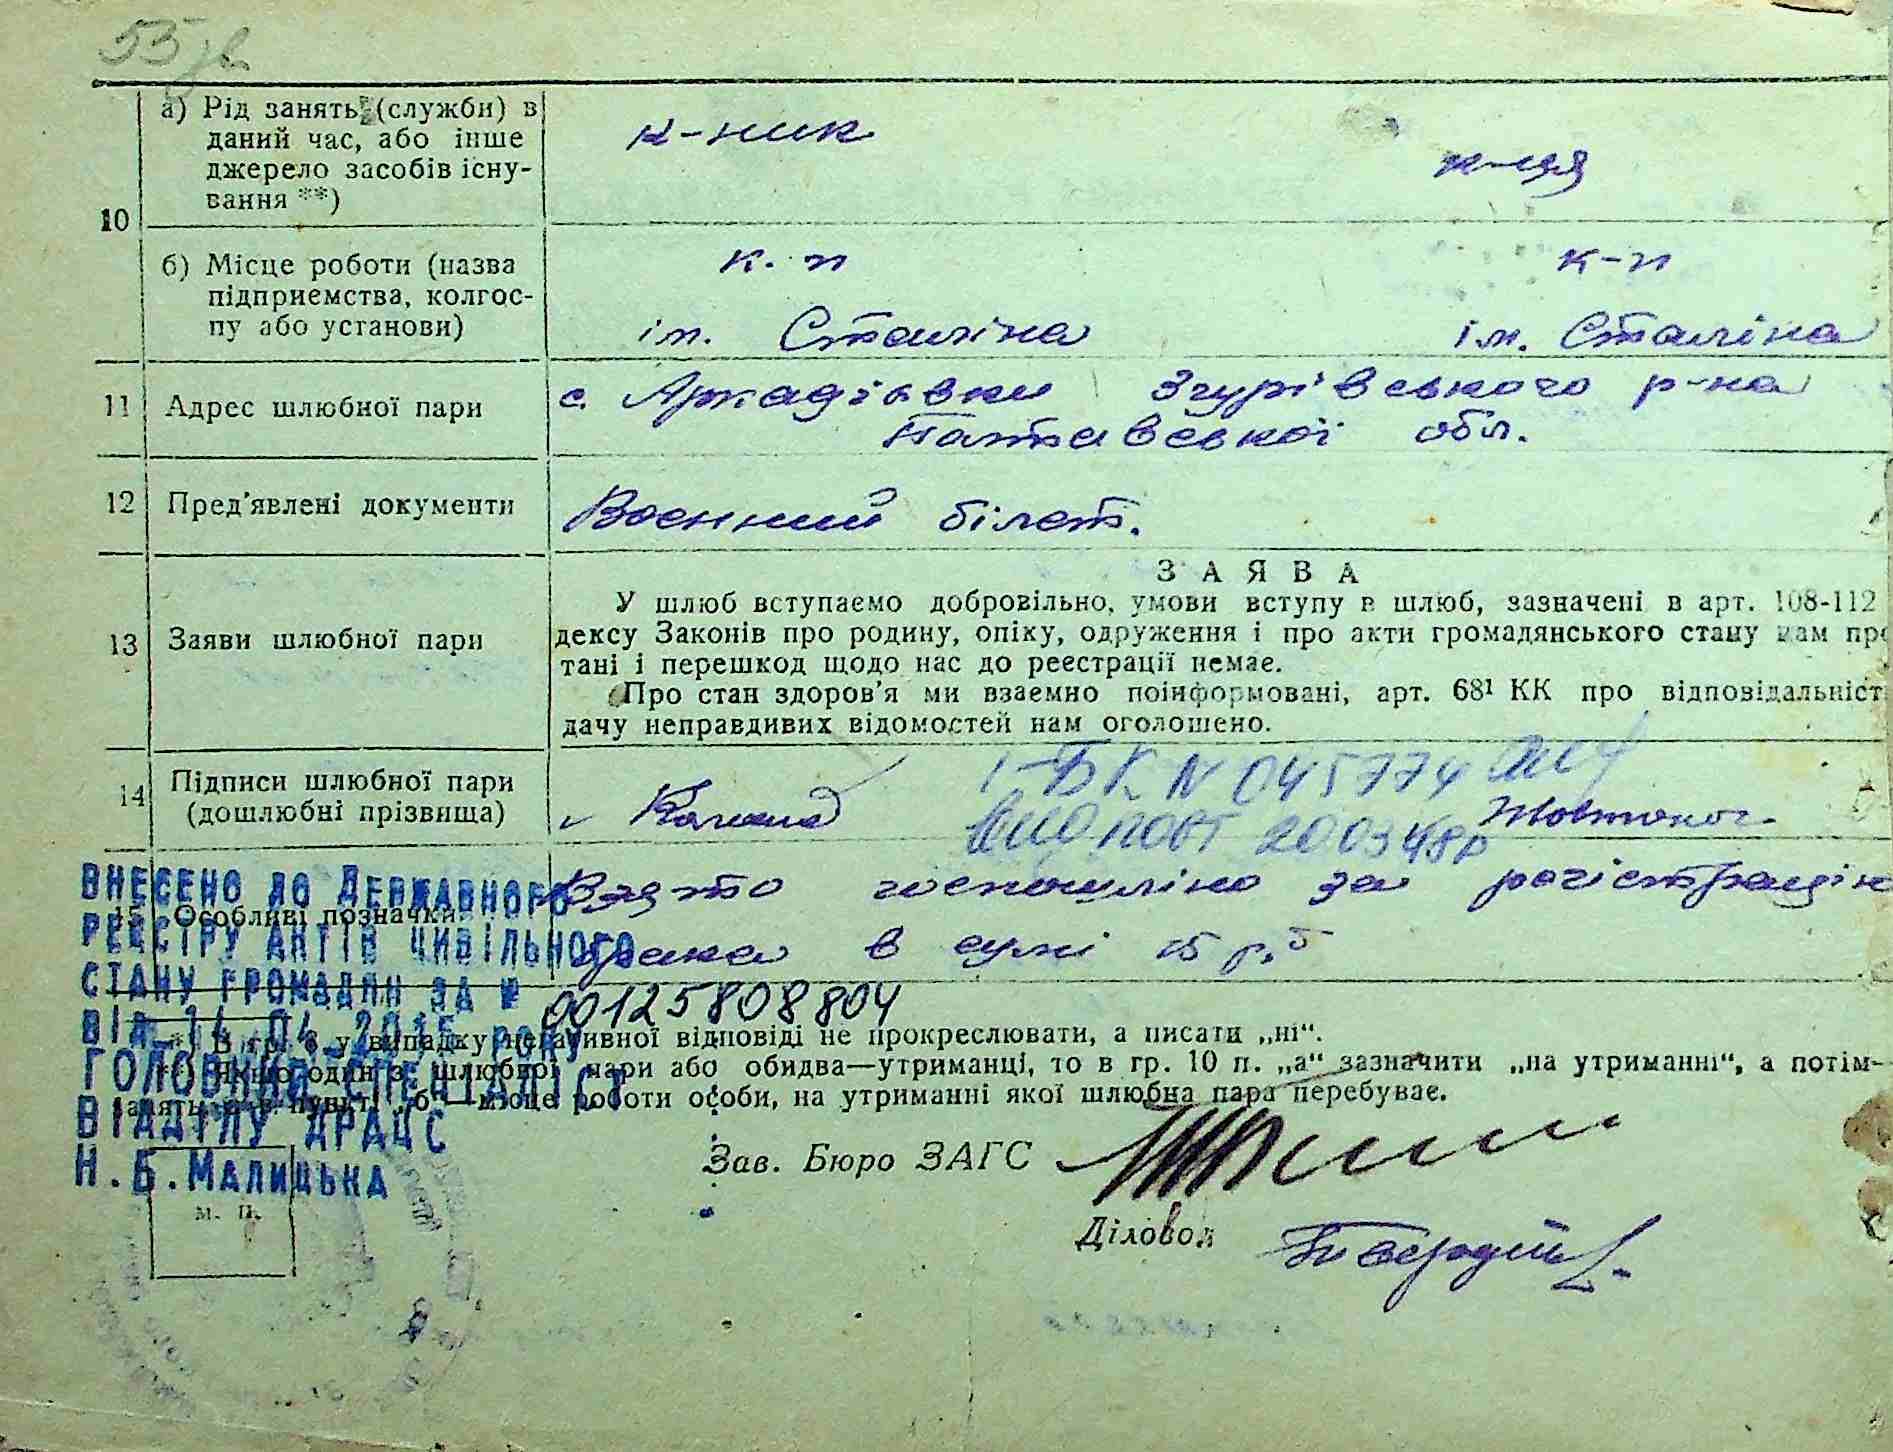 55 зв
10
а) Рід занять (служби) в даний час, або інше джерело засобів існування **)
к-ник
к-ця
б) Місце роботи (назва підприємства, колгоспу або установи)
к. п
к-п
ім. Сталіна
ім. Сталіна
11 Адрес шлюбної пари
с. Аркадіівки Згурівського р-на
Полтавської обл.
12 Пред'явлені документи
Воєнний білет.
13 Заяви шлюбної пари
ЗАЯВА
У шлюб вступаємо добровільно, умови вступу в шлюб, зазначені в арт. 108-112
дексу Законів про родину, опіку, одруження і про акти громадянського стану нам про
тані і перешкод щодо нас до реєстрації немає.
Про стан здоров'я ми взаємно поінформовані, арт. 68¹ КК про відповідальніст
дачу неправдивих відомостей нам оголошено.
14 Підписи шлюбної пари
(дошлюбні прізвища)
І-БК N 045774
200348р
15 Особливі позначки
Взято госпошліно за регістрацію
брака в сумі 15 р.
ВНЕСЕНО ДО ДЕРЖАВНОГО
РЕЄСТРУ АКТІВ ЦИВІЛЬНОГО
СТАНУ ГРОМАДЯН ЗА №
00125808804
ВІД 14.04.2015 РОКУ
ГОЛОВНИЙ СПЕЦІАЛІСТ
ВІДДІЛУ ДРАЦС
Н.Б.МАЛИЦЬКА
*) В гр. 6 у випадку негативної відповіді не прокреслювати, а писати „ні“.
**) Якщо один з шлюбної пари або обидва—утриманці, то в гр. 10 п. „а“ зазначити „на утриманні“, а потім-
занять, а в пункті „б“—місце роботи особи, на утриманні якої шлюбна пара перебуває.
Зав. Бюро ЗАГС
Діловод
м. п.